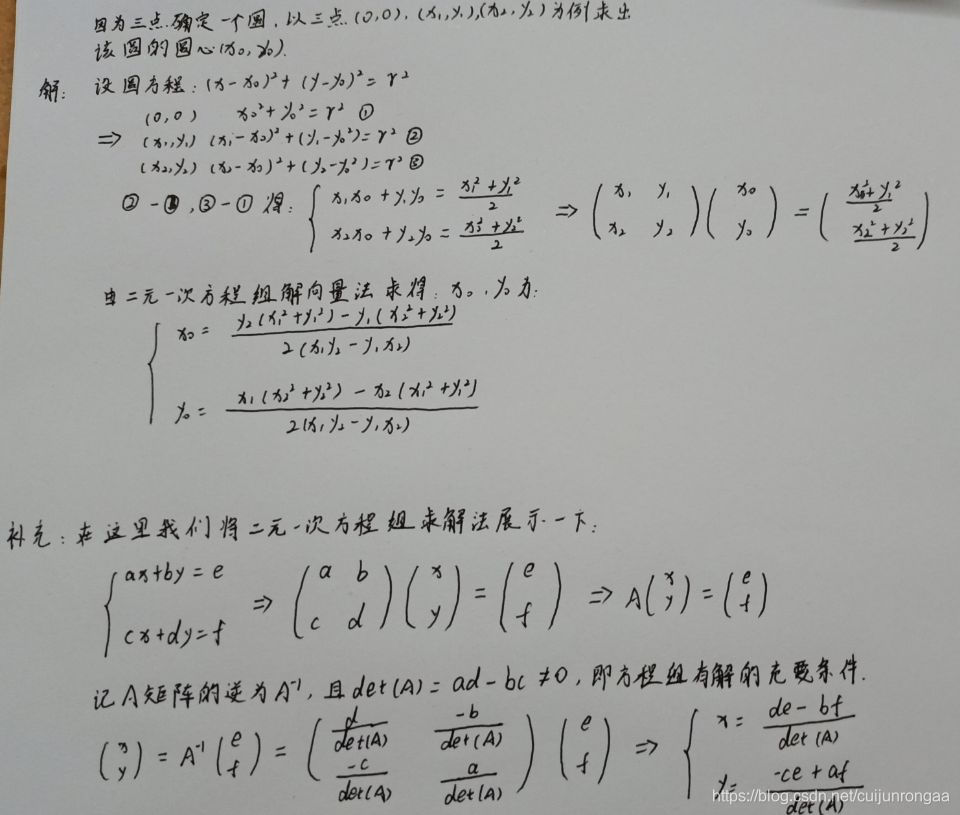 因为三点确定一个圆，以三点(0,0)，(x₁,y₁),(x₂,y₂)为例求出
该圆的圆心(x₀,y₀).
解： 设圆方程：(x-x₀)²+(y-y₀)²=r²
(0,0) x₀²+y₀²=r² ①
⇒ (x₁,y₁) (x₁-x₀)²+(y₁-y₀²)=r² ②
(x₂,y₂) (x₂-x₀)²+(y₂-y₀²)=r² ③
②-①,③-①得：{ x₁x₀+y₁y₀=(x₁²+y₁²)/2 x₂x₀+y₂y₀=(x₂²+y₂²)/2 ⇒ (x₁ y₁; x₂ y₂)(x₀; y₀)=((x₁²+y₁²)/2; (x₂²+y₂²)/2)
由二元一次方程组解向量法求得：x₀,y₀为：
{ x₀=(y₂(x₁²+y₁²)-y₁(x₂²+y₂²))/(2(x₁y₂-y₁x₂))
y₀=(x₁(x₂²+y₂²)-x₂(x₁²+y₁²))/(2(x₁y₂-y₁x₂))
补充：在这里我们将二元一次方程组求解法展示一下：
{ ax+by=e cx+dy=f ⇒ (a b; c d)(x; y)=(e; f) ⇒ A(x; y)=(e; f)
记A矩阵的逆为A⁻¹，且det(A)=ad-bc≠0，即方程组有解的充要条件.
(x; y)=A⁻¹(e; f)=(d/det(A) -b/det(A); -c/det(A) a/det(A))(e; f) ⇒ { x=(de-bf)/det(A) y=(-ce+af)/det(A)
https://blog.csdn.net/cuijunrongaa